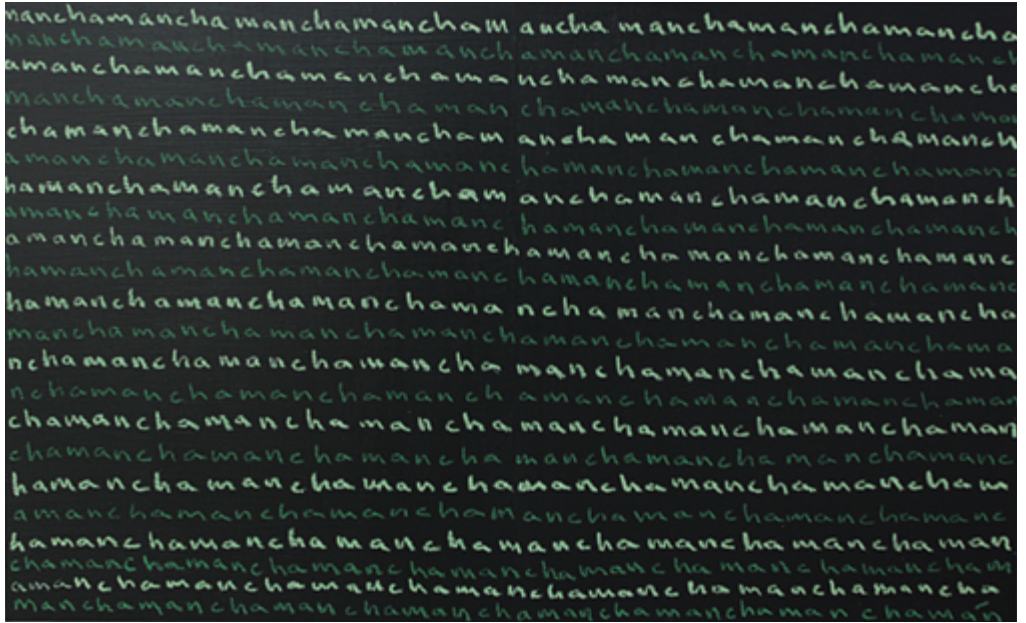 manchamancha manchamancham ancha manchamanchamancha
manchamanchamamanchamanchamanchamanchamanchamanch
amanchamanchamanchamanchamanchamanchamancha
manchamanchamanchamanchamanchamanchamanchamam
chamanchamancha mancham ancha man chamanchamanch
amanchamanchamanchamanchamanchamanchamanchamanc
hamanchamancham ancham anchamanchamanchamanch
amanchamanchamanchamanc hamanchamanchamanchamanch
amanchamanchamanchamanchamancha manchamanchamanc
hamanchamanchamanchamanc hamanchamanchamanchamanc
hamanchamanchamanchama ncha manchamanchamancha
manchamanchamanchamanchamanchamanchamanchama
nchamanchamanchamancha manchamanchamanchama
nchamanchamanchamanch amanchamanchamanchaman
chamanchamanchaman chamanchamanchamanchaman
chamanchamanchamancha manchamanchamanchamanc
hamanchamanchamanchamanchamanchamancham
amanchamanchamancham anchamanchamanchamanc
hamanchamanchamanchamanchamanchamanchaman
chamanchamanchamanchamanchamanchamanchamancham
amanchamanchamanchamanchamanchamanchamancha
manchamanchamanchamanchamanchamanchaman chaman